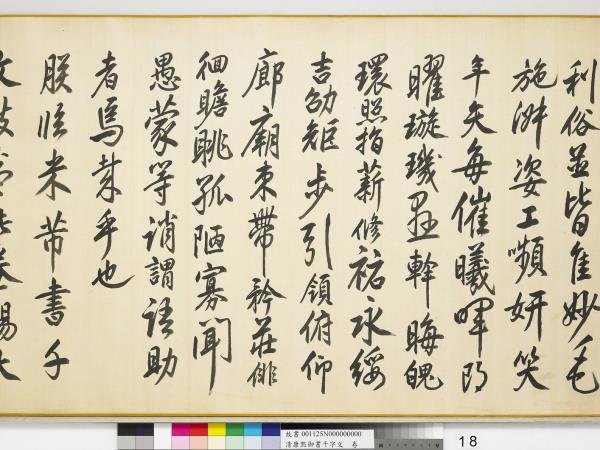 利俗並皆佳妙毛
施淑姿工嚬妍笑
年矢每催曦暉朗
曜璇璣懸斡晦魄
環照指薪修祜永綏
吉劭矩步引領俯仰
廊廟束帶矜莊俳
徊瞻眺孤陋寡聞
愚蒙等誚謂語助
者焉哉乎也
朕臨米芾書千
故書 001125N000000000
清康熙御書千字文 卷
18